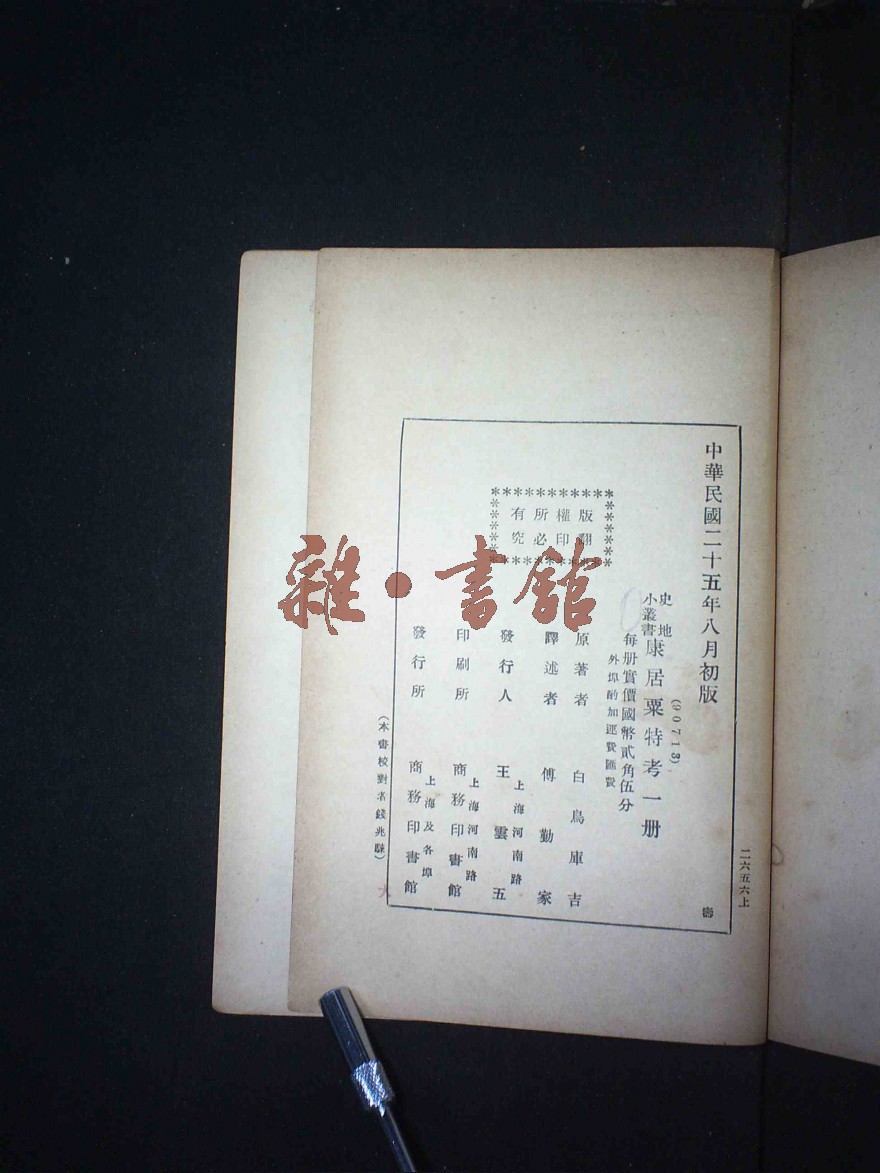 中華民國二十五年八月初版
(90713)
史地
小叢書
康居粟特考一册
每册實價國幣貳角伍分
外埠酌加運費匯費
版權所有
翻印必究
原著者 白鳥庫吉
譯述者 傅勤家
上海河南路
發行人 王雲五
上海河南路
印刷所 商務印書館
上海及各埠
發行所 商務印書館
(本書校對者錢兆騄)
二六五六上
壽
雜·書館